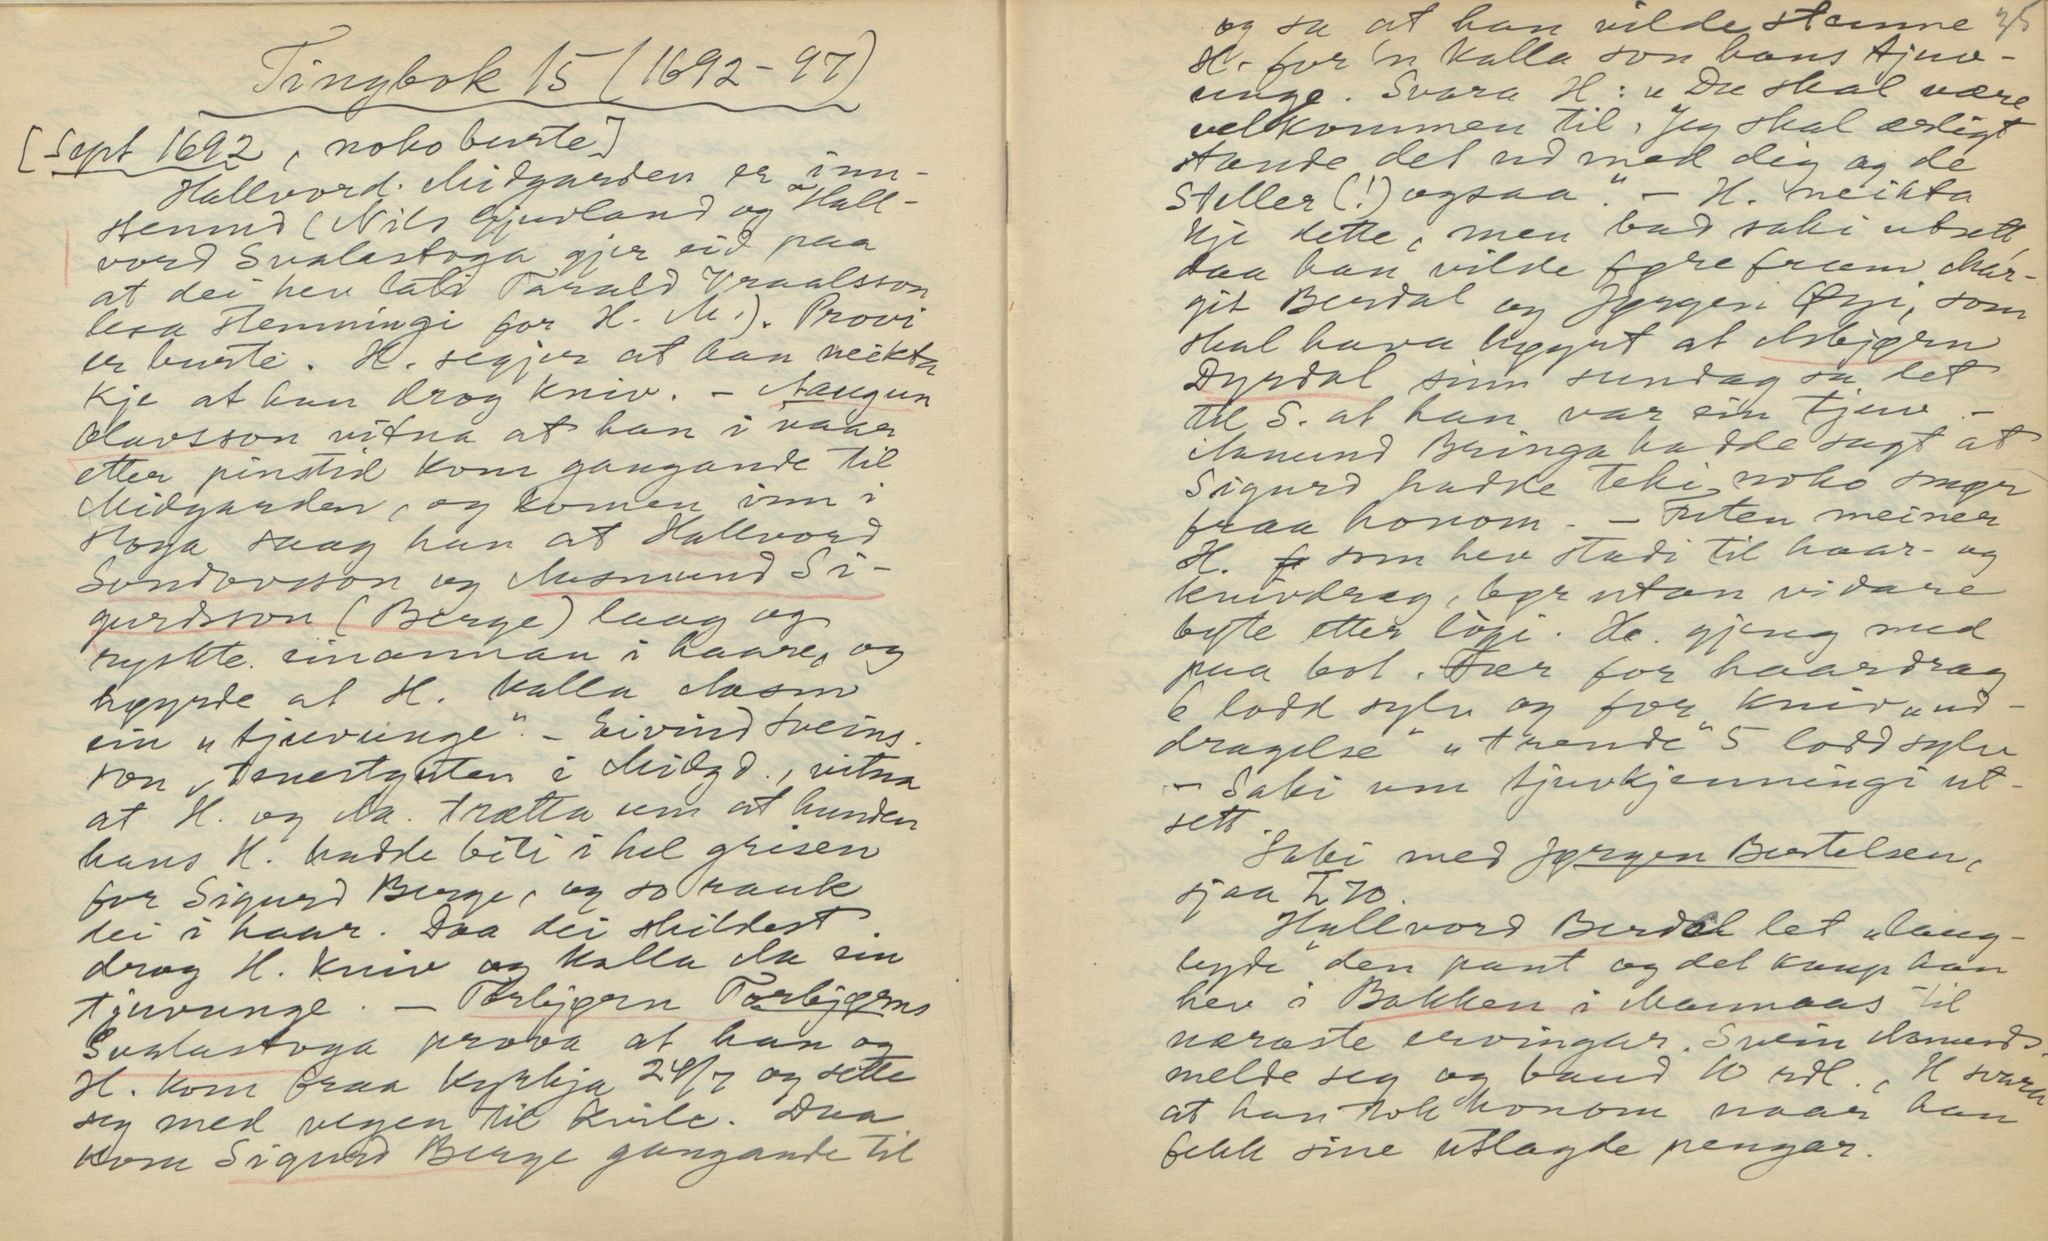 Tingbok 15 (1692-97)
[Sept 1692, noko burte]
Hallvord Midgarden er inn-
stemnd (Nils Gjuvland og Hall-
vord Svalastoga gjer eid paa
at dei hev lati Tarald Vraalsson
lesa stemningi for H. M.). Provi
er burte. H. segjer at han neikta
kje at han drog kniv. - Aaugun
Olavsson vitna at han i vaar
etter pinstid kom gangande til
Midgarden, og komen inn i
stoga saag han at Hallvord
Sondovsson og Aasmund Si-
gurdsson (Berge) laag og
ryskte einannan i haare, og
høyrde at H. kalla Aasm
ein "tjuvunge". - Eivind Sveins-
son, tenestguten i Midgd., vitna
at H. og Aa. trætta um at hunden
hans H. hadde biti i hel grisen
for Sigurd Berge, og so rauk
dei i haar. Daa dei skildest
drog H. kniv og kalla Aa ein
tjuvunge. - Torbjørn Torbjørns
Svalastoga prova at han og
H. kom fraa kyrkja 24/7 og sette
seg med vegen til kvile. Daa
kom Sigurd Berge gangande til
25
og sa at han vilde stemne
H. for 'n kalla son hans tjuv-
unge. Svara H: "Du skal være
velkommen til, Jeg skal ærligt
stande det ud med dig og de
Steller (!) ogsaa". - H. neikta
kje dette, men bad saki utsett,
daa han vilde føre fram Mar-
git Berdal og Jørgen Øyi, som
skal hava høyrt at Asbjørn
Dyrdal sinn sundag sa let
til S. at han var ein tjuv. -
Aamund Bringa hadde sagt at
Sigurd hadde teki noko smør
fraa honom. - Futen meiner
H. som hev stadi til haar- og
knivdrag, bør utan vidare
bøte etter logi. H. gjeng med
paa bot. Fær for haardrag
6 lodd sylv og for kniv "ud-
dragelse" "trende" 5 lodd sylv
- Saki um tjuvkjenningi ut-
sett.
Saki med Jørgen Bertelsen,
sjaa I 70.
Hallvord Berdal let "laug-
byde" den pant og det kaup han
hev i Bakken i Mannaas til
næraste ervingar. Svein Aamunds.
melde seg og baud 10 rdl., H svara
at han tok honom naar han
fekk sine utlagde pengar.